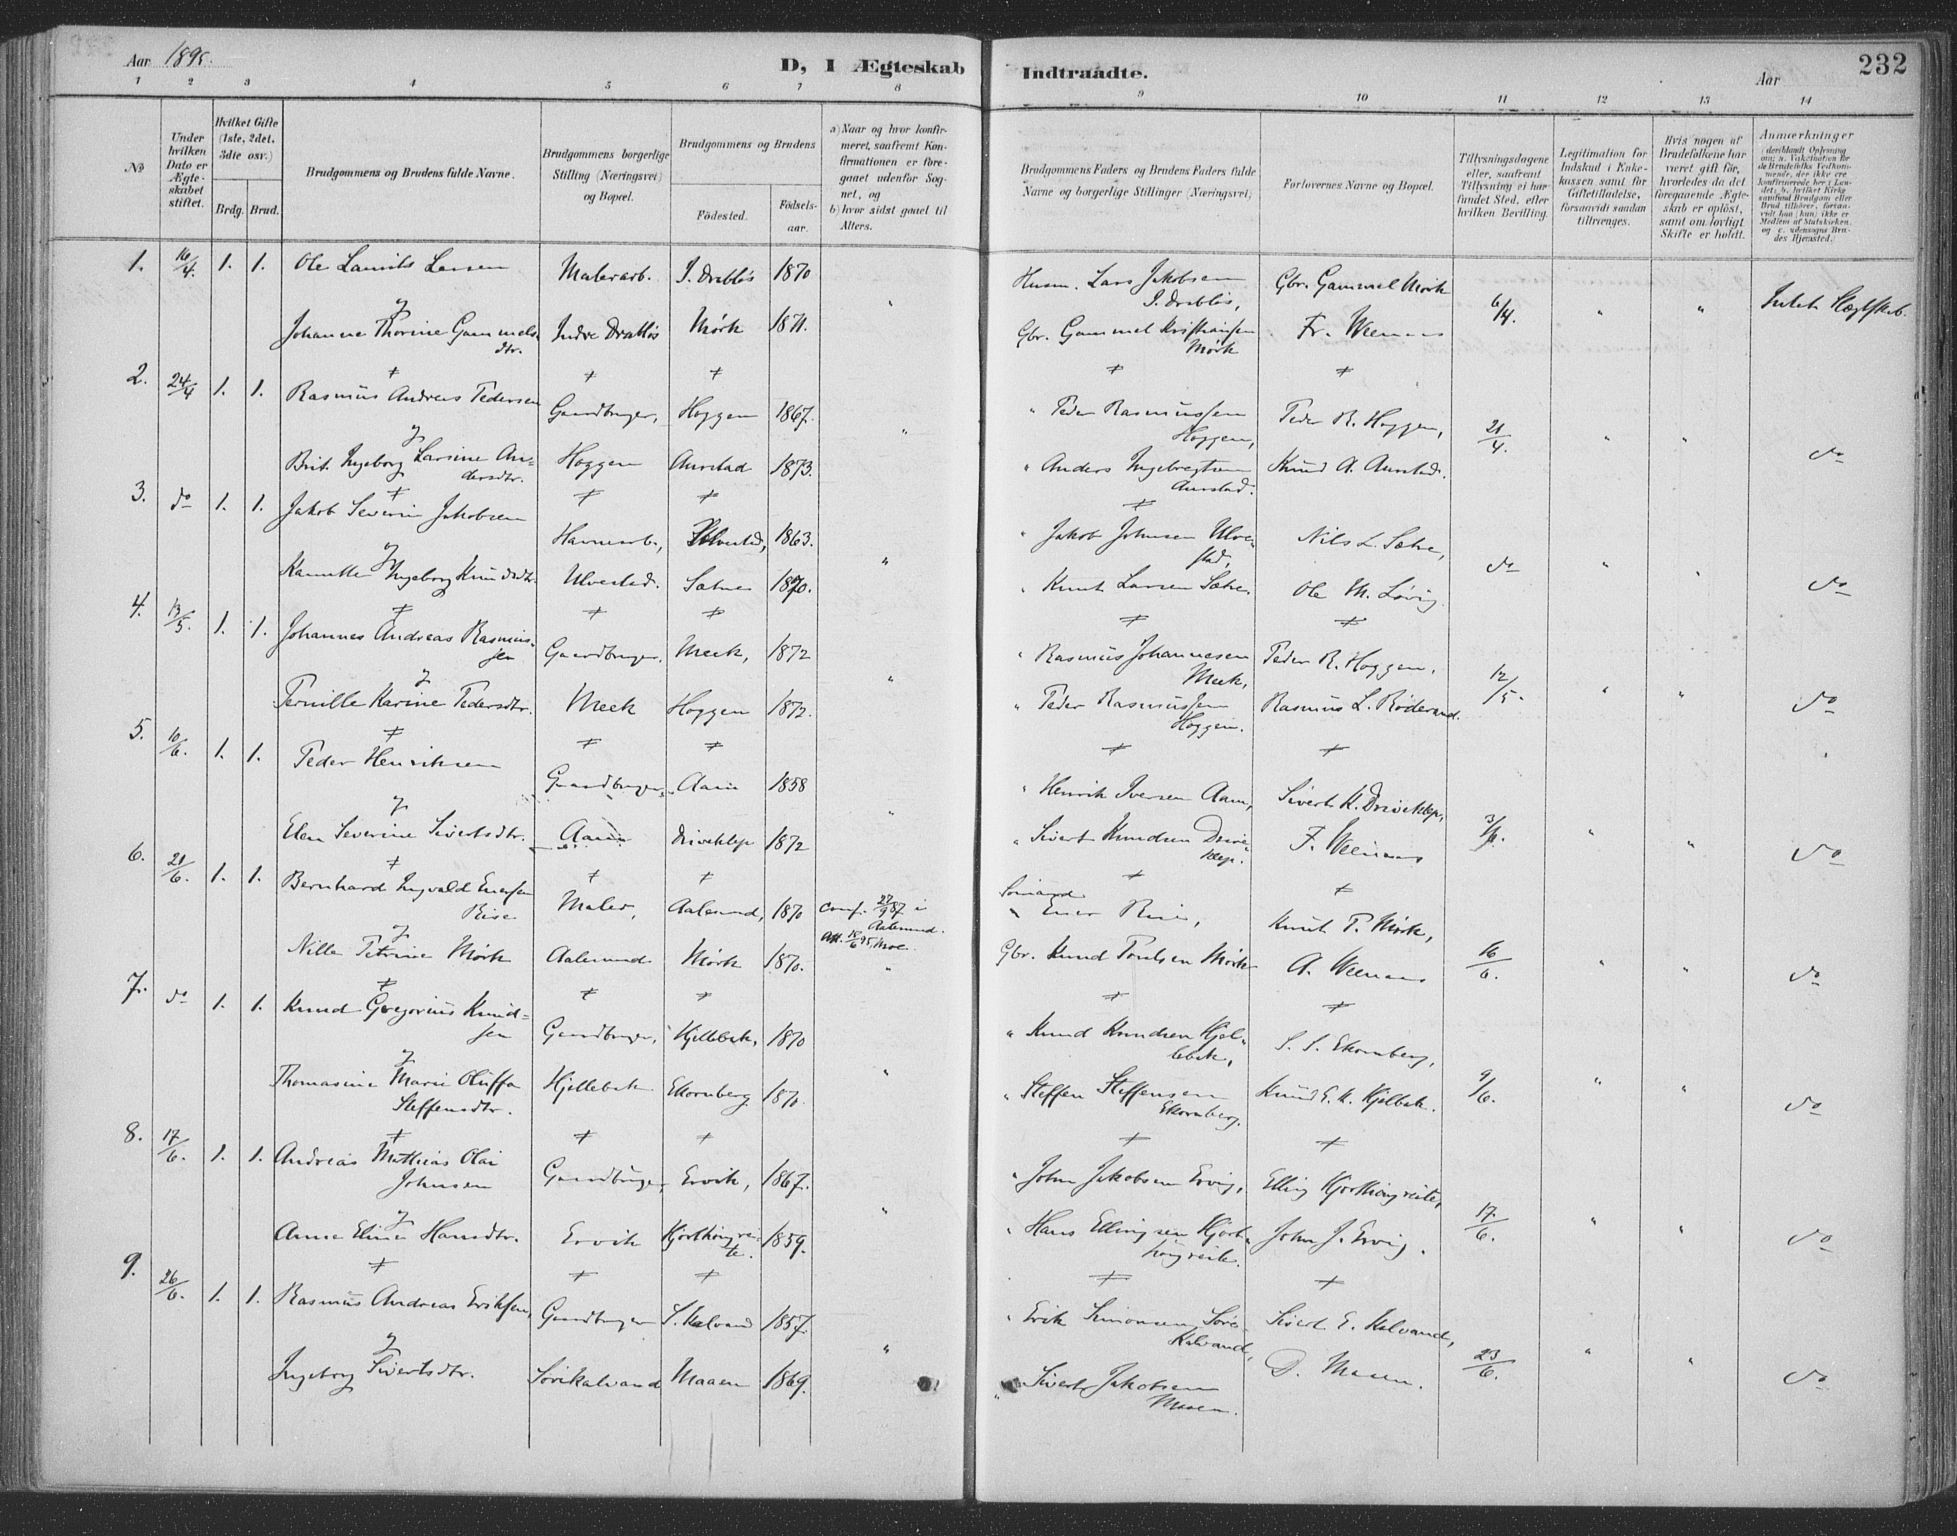 Aar 1895.
D, I Ægteskab Indtraadte.
Aar
232
1 2 3 4 5 6 7 8 9 10 11 12 13 14
No
Under hvilken Dato er Ægteskabet stiftet.
Hvilket Gifte (1ste, 2det, 3die osv.)
Brdg. Brud.
Brudgommens og Brudens fulde Navne.
Brudgommens borgerlige Stilling (Næringsvei) og Bopæl.
Brudgommens og Brudens
Födested.
Födselsaar.
a) Naar og hvor konfirmeret, saafremt Konfirmationen er foregaaet udenfor Sognet, og
b) hvor sidst gaaet til Alters.
Brudgommens Faders og Brudens Faders fulde Navne og borgerlige Stillinger (Næringsvei)
Forlovernes Navne og Bopæl.
Tillysningsdagene eller, saafremt Tillysning ei har fundet Sted, efter hvilken Bevilling.
Legitimation for Indskud i Enkekassen samt for Giftetilladelse, forsaavidt saadan tiltrænges.
Hvis nogen af Brudefolkene har været gift før, hvorledes da det foregaaende Ægteskab er oplöst, samt om lovligt Skifte er holdt.
Anmærkninger
1. 16/4. 1. 1. Ole Laurits Larsen Malerarb. I. Drabløs 1870 Husm. Lars Jakobsen I. Drabløs, Gbr. Gammel Mørk 6/4. " " Intet Slægtskab.
& Johanne Thorine Gammelsdtr. Indre Drabløs Mørk 1871. " Gbr. Gammel Kristiansen Mørk Fr. Weenaas
2. 24/4 1. 1. Rasmus Andreas Pedersen Gaardbruger, Hoggen 1867. " Peder Rasmussen Hoggen, Peder R. Hoggen, 21/4. " " do
& Brit Ingeborg Larsine Andersdtr. Hoggen Aurstad 1873. " Anders Ingebregtsen Aurstad. Knud A. Aurstad.
3. do 1. 1. Jakob Severin Jakobsen Havnearb., Ulvestad, 1863. " Jakob Johnsen Ulvestad, Nils L. Sætre, do " " do
& Ingeborg Knudsdtr. Ulvestad. Sætre 1870. " Knut Larsen Sætre. Ole M. Løvig
4. 13/5. 1. 1. Johannes Andreas Rasmussen Gaardbruger. Meek, 1872 " Rasmus Johannesen Meek, Peder R. Hoggen, 12/5. " " do
& Pernille Karine Pedersdtr. Meek Hoggen 1872. " Peder Rasmussen Hoggen. Rasmus L. Röderand.
5. 10/6. 1. 1. Peder Henriksen Gaardbruger, Aam 1858 " Henrik Iversen Aam, Sivert K. Driveklep, 3/6. " " do
& Elen Severine Sivertsdtr. Aam Driveklep 1872 " Sivert Knudsen Driveklep. F. Weenaas
6. 21/6. 1. 1. Bernhard Ingvald Enersen Rise Maler, Aalesund, 1870 Conf. 27/9 87 i Aalesund. Att. 18/6 95, Moe. Sömand Ener Rise, Knut P. Mørk, 16/6. " " do
& Nille Petrine Mørk Aalesund Mørk 1870. " Gbr. Knud Poulsen Mørk A. Weenaas
7. do 1. 1. Knud Gregorius Knudsen Gaardbruger, Hjellebak, 1870 " Knud Knudsen Hjellebak, S. S. Ekornberg, 9/6. " " do
& Thomasine Marie Oluffa Steffensdtr. Hjellebak Ekornberg 1870. " Steffen Steffensen Ekornberg. Knud E. K. Hjelbak.
8. 17/6. 1. 1. Andreas Mathias Olai Johnsen Gaardbruger, Ervik, 1867. " John Jakobsen Ervig, Elling Hjorthøgreite, 17/6. " " do
& Anne Eline Hansdtr. Ervik Hjorthøgreite. 1859. " Hans Ellingsen Hjorthøgreite. John J. Ervig.
9. 26/6. 1. 1. Rasmus Andreas Eriksen, Gaardbruger S. Kalvand 1857. " Erik Simonsen Søre Kalvand, Sivert E. Kalvand, 23/6. " " do
& Ingeborg Sivertsdtr. Sörikalvand Maaen 1869. " Sivert Jakobsen Maaen. D. Maaen.